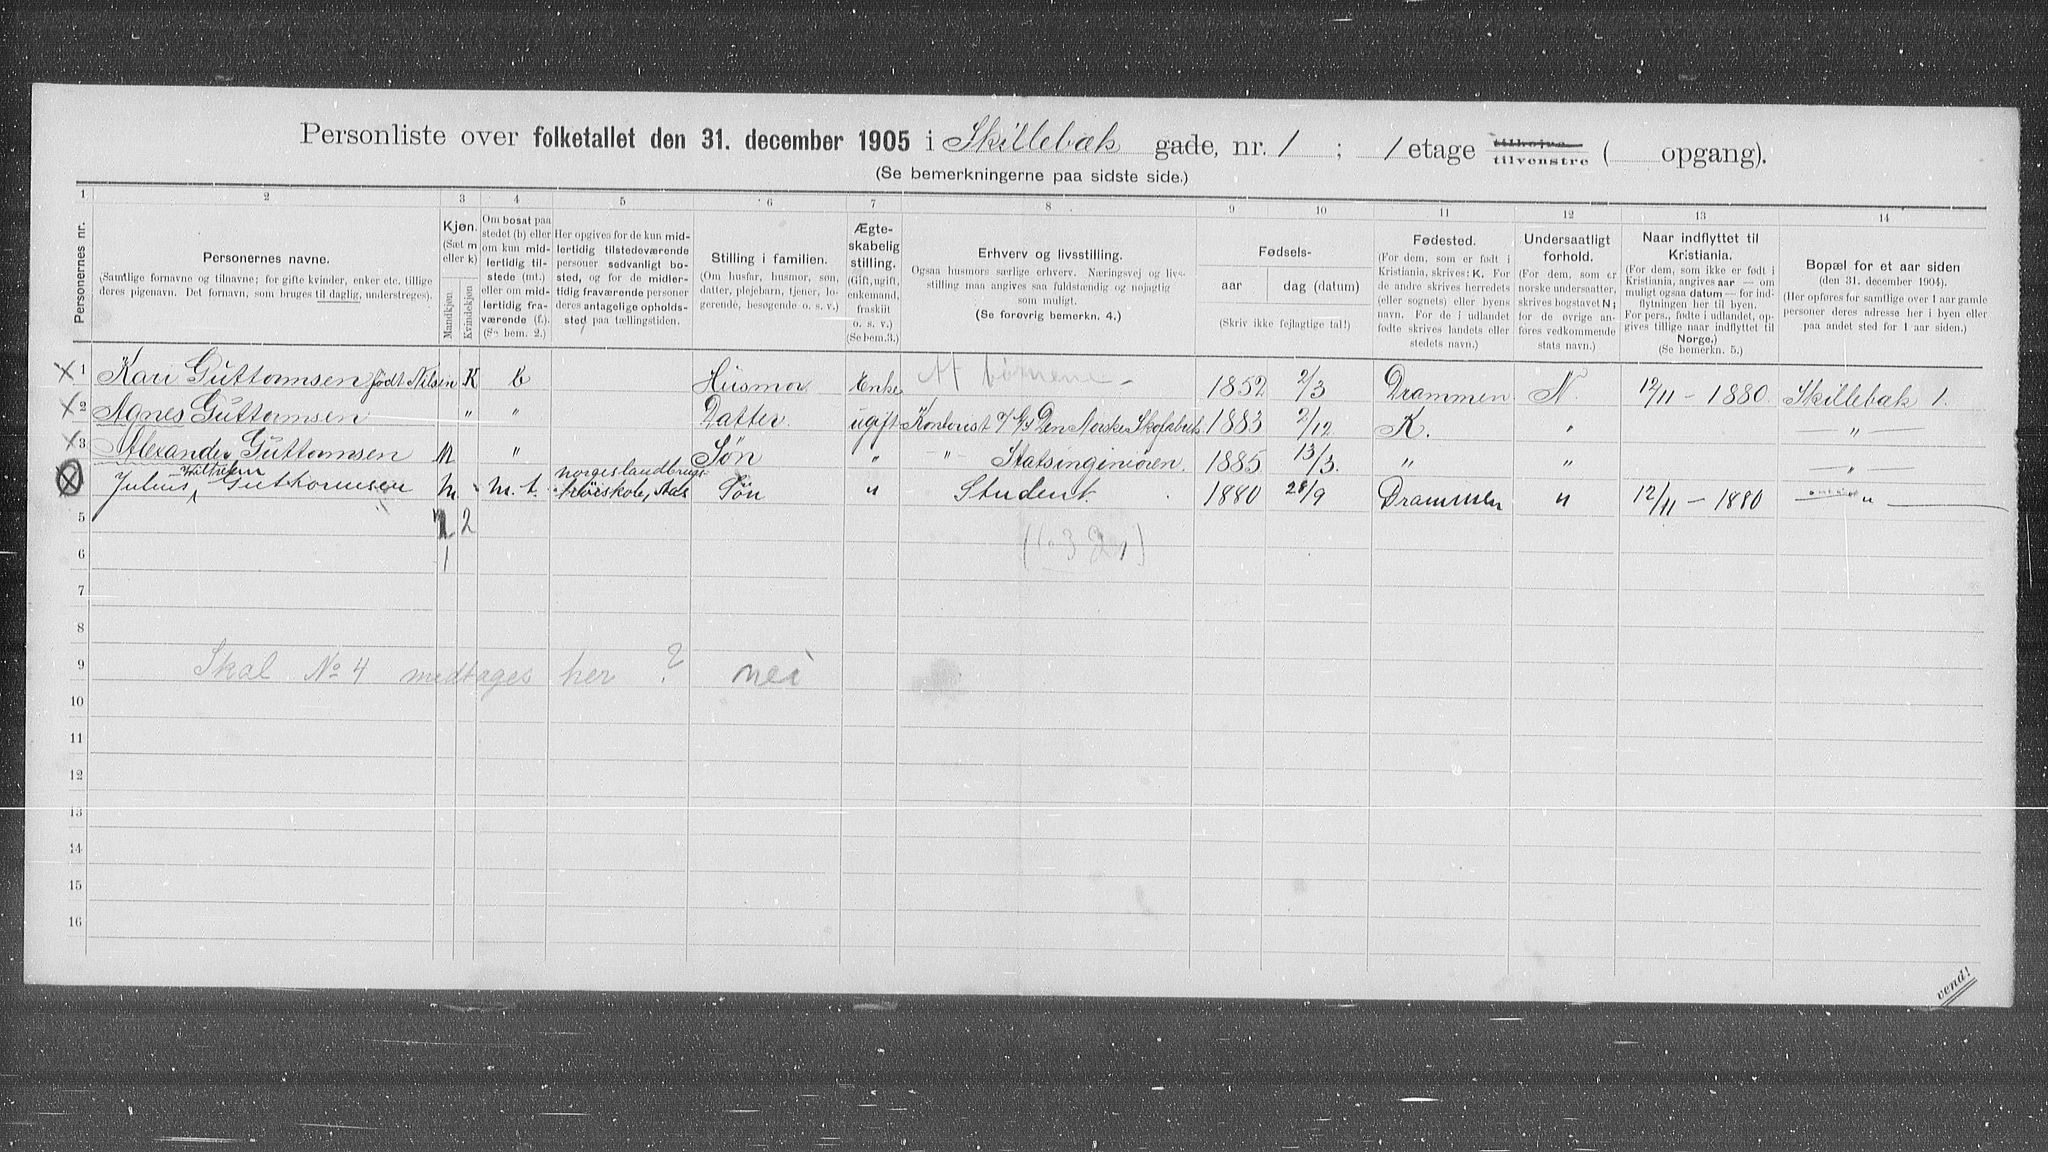 Personliste over folketallet den 31. december 1905 i Skillebæk gade, nr. 1 ; 1 etage tilhøjre tilvenstre ( opgang).
(Se bemerkningerne paa sidste side.)
1 2 3 4 5 6 7 8 9 10 11 12 13 14
Personernes nr.
Personernes navne.
(Samtlige fornavne og tilnavne; for gifte kvinder, enker etc. tillige
deres pigenavn. Det fornavn, som bruges til daglig, understreges).
Kjøn.
(Sæt m
eller k)
Mandkjøn.
Kvindekjøn
Om bosat paa
stedet (b) eller
om kun mid-
lertidig til-
stede (mt.)
eller om mid-
lertidig fra-
værende (f.).
(Se bem. 2.)
Her opgives for de kun mid-
lertidig tilstedeværende
personer sedvanlig bo-
sted, og for de midler-
tidig fraværende personer
deres antagelige opholds-
sted paa tællingstiden.
Stilling i familien.
(Om husfar, husmor, søn,
datter, plejebarn, tjener, lo-
gerende, besøgende o. s. v.)
Ægte-
skabelig
stilling.
(Gift, ugift,
enkemand,
fraskilt
o. s. v.)
(Se bem.3.)
Erhverv og livsstilling.
Ogsaa husmors særlige erhverv. Næringsvej og livs-
stilling maa angives saa fuldstændig og nøjagtig
som muligt.
(Se forøvrig bemerkn. 4.)
Fødsels-
aar
dag (datum)
(Skriv ikke fejlagtige tal!)
Fødested.
(For dem, som er født i
Kristiania, skrives: K. For
de andre skrives herredets
(eller sognets) eller byens
navn. For de i udlandet
fødte skrives landets eller
stedets navn.)
Undersaatligt
forhold.
(For dem, som er
norske undersaatter,
skrives bogstavet N;
for de øvrige an-
føres vedkommende
stats navn.)
Naar indflyttet til
Kristiania.
(For dem, som ikke er født i
Kristiania, angives aar — om
muligt ogsaa datum — for ind-
flytningen her til byen.
For pers., fødte i udlandet, op-
gives tillige naar indflyttet til
Norge.)
(Se bemerkn. 5.)
Bopæl for et aar siden
(den 31. december 1904).
(Her opføres for samtlige over 1 aar gamle
personer deres adresse her i byen eller
paa andet sted for 1 aar siden.)
1 Kari Guttormsen født Nilsen K b Husmor Enke Af børnene 1852 2/3 Drammen N. 12/11 - 1880. Skillebæk 1.
2 Agnes Guttormsen " " Datter. ugift Kontorist A/S Den Norske Skofabrik 1883 2/12 K. " — " —
3 Alexander Guttormsen M " Søn " " Statsingeniøren. 1885 13/3. " " — " —
Julius Wilhelm Guthormsen M m. t. norges landbrugs høiskole, Aas Søn " Student 1880 28/9 Drammen " 12/11 - 1880 "
5 2 2
6 1
7
8
9 Skal No 4 medtages her ? nei
10
11
12
13
14
15
16
vend!